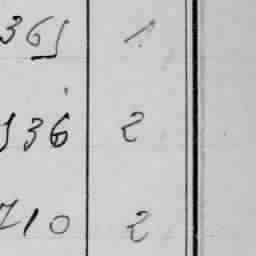 365 1
936 2
710 2